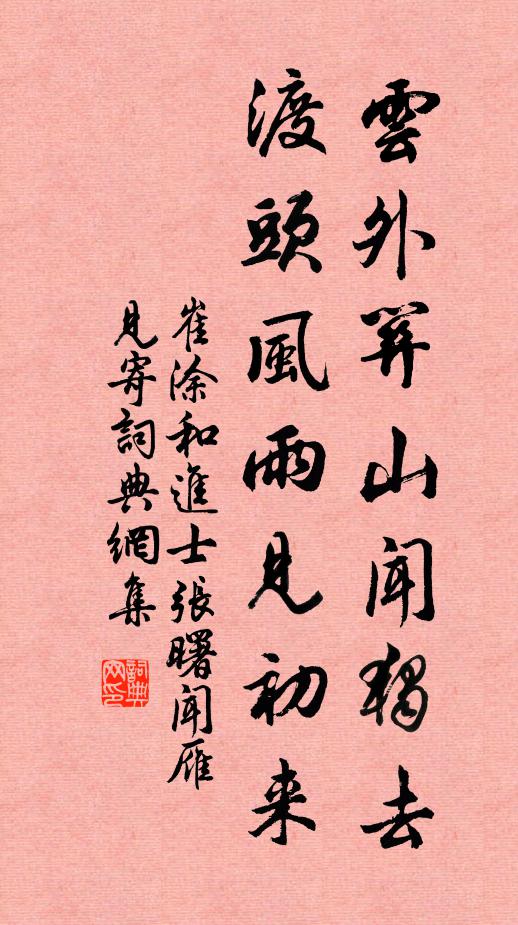 雲外關山聞獨去
渡頭風雨見初来
崔涂和進士張曙聞雁
見寄詞典網集
詞典
网印